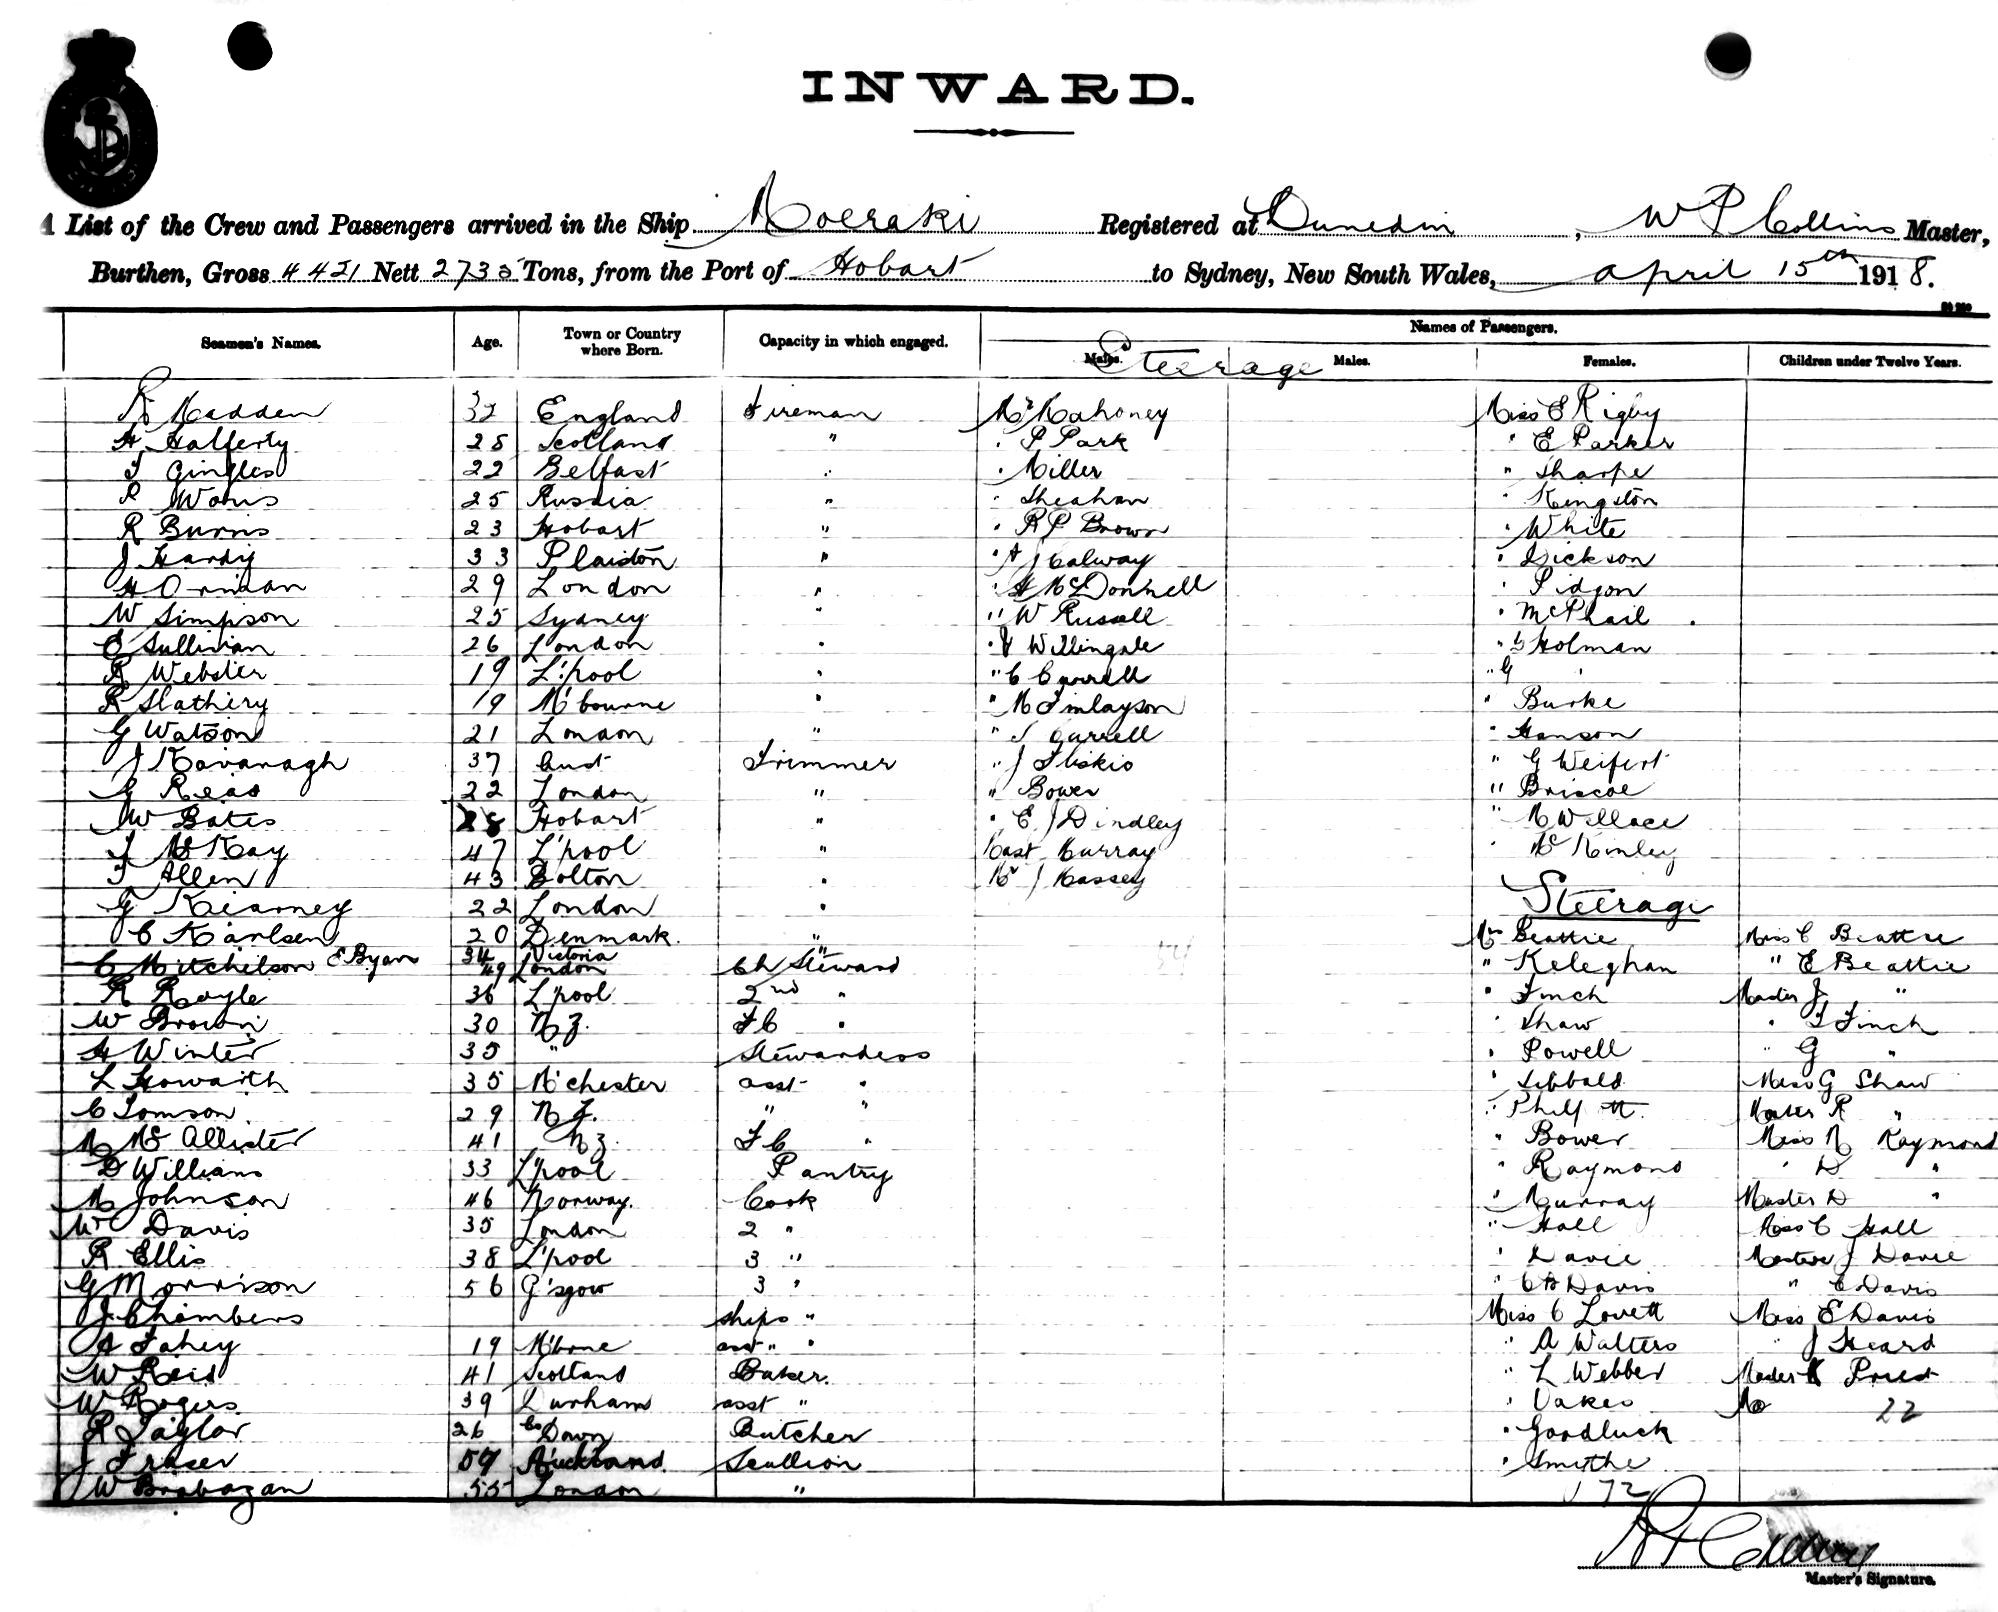 INWARD.
A List of the Crew and Passengers arrived in the Ship Moeraki Registered at Dunedin, W P Collins Master,
Burthen, Gross 4421 Nett 2733 Tons, from the Port of Hobart to Sydney, New South Wales, April 15th 1918.
Names of Passengers.
Seamen's Names. Age. Town or Country where Born. Capacity in which engaged. Males. Males. Females. Children under Twelve Years.
Steerage
R Madden 32 England Fireman Mr Mahoney Miss E Rigby
H Halferty 28 Scotland " " P Park " E Parker
T Gingles 22 Belfast " " Miller " Sharpe
P 25 Russia " " Sheahan " Kingston
R Burns 23 Hobart " " R P Brown " White
J Hardy 33 Plaiston " " A J Calway " Dickson
H Orman 29 London " " H McDonnell " Pidgon
W Simpson 25 Sydney " " W Russell " McPhail
E Sullivan 26 London " " Willingale " G Holman
R Webster 19 L'pool " " C Carrell " G "
R Slathery 19 M'bourne " " M Finlayson " Burke
G Watson 21 London " " J Garrell " Hanson
J Kavanagh 37 Aust Trimmer " J Fliskio " G Weifert
G Reas 22 London " " Bower " Briscoe
W Bates 28 Hobart " " E J Dindley " M Wallace
T McKay 47 L'pool " Murray " McKinley
T Allen 43 Bolton " Mr J Massey
G Kearney 22 London " Steerage
C Karlsen 20 Denmark. " Mrs Beattie Miss C Beattie
C Mitchelson E Byan 34 Victoria 49 London Ch Steward " Keleghan " E Beattie
R Royle 36 L'pool 2nd " " Finch Master J "
W Brown 30 N Z. F C " " Shaw " T Finch
H Winter 35 " Stewardess " Powell " G "
L Howarth 35 M'chester asst " " Sibbald Miss G Shaw
C Tomson 29 N Z. " " " Philpott Master R "
M McAllister 41 N Z. F C " " Bower Miss N Raymond
D Williams 33 L'pool Pantry " Raymond " D "
M Johnson 46 Norway. Cook " Murray Master D "
Wr Davis 35 London 2 " " Hall Miss C Hall
R Ellis 38 L'pool 3 " " Davie Masters J Davie
G Morrison 56 G'sgow 3 " " C H Davis " C Davis
J Chambers ships " Miss C Lovett Miss E Davis
A Fahey 19 M'brne asst " " " A Walters " J Heard
W Reid 41 Scotland Baker. " L Webber Master K Priest
W Rogers 39 Durham asst " " Oakes No 22
R Taylor 26 Co Down Butcher " Goodluck
J Fraser 57 Auckland. Scullion " Smithe
W Brabazan 55 London " 172
Master's Signature.